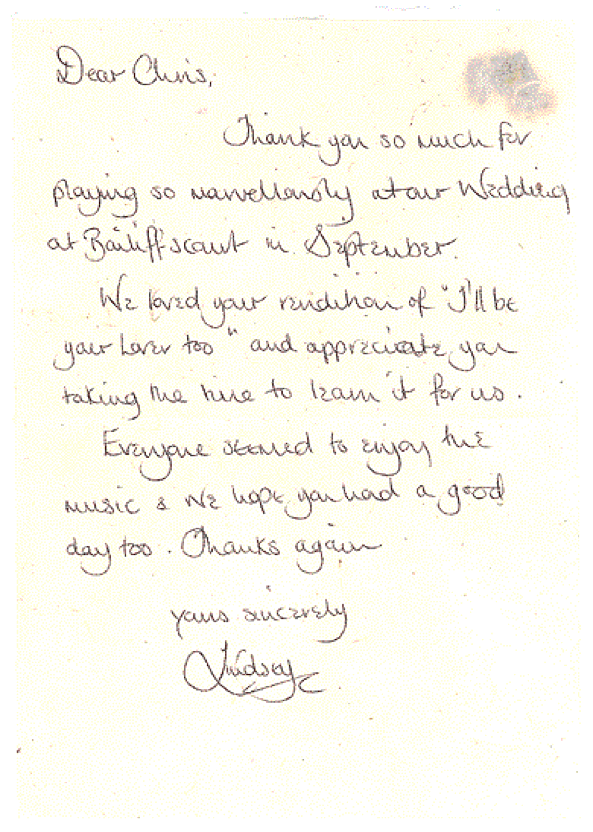 Dear Chris,
Thank you so much for
playing so marvellously at our Wedding
at Bailiffscourt in September.
We loved your rendition of "I'll be
your Lover too" and appreciate you
taking the time to learn it for us.
Everyone seemed to enjoy the
music & we hope you had a good
day too. Thanks again
yours sincerely
Lindsey